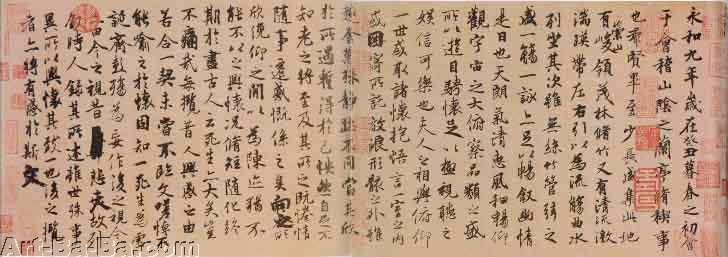 永和九年歲在癸丑暮春之初會
于會稽山陰之蘭亭脩稧事
也羣賢畢至少長咸集此地
有崇山峻領茂林脩竹又有清流激
湍暎帶左右引以為流觴曲水
列坐其次雖無絲竹管弦之
盛一觴一詠亦足以暢叙幽情
是日也天朗氣清惠風和暢仰
觀宇宙之大俯察品類之盛
所以遊目騁懷足以極視聽之
娛信可樂也夫人之相與俯仰
一世或取諸懷抱悟言一室之內
或因寄所託放浪形骸之外雖
趣舍萬殊靜躁不同當其欣
於所遇暫得於己怏然自足不
知老之將至及其所之既惓情
隨事遷感慨係之矣向之所
欣俛仰之間以為陳迹猶不
能不以之興懷況脩短隨化終
期於盡古人云死生亦大矣豈
不痛哉每攬昔人興感之由
若合一契未嘗不臨文嗟悼不
能喻之於懷固知一死生為虛
誕齊彭殤為妄作後之視今
亦由今之視昔悲夫故列
叙時人錄其所述雖世殊事
異所以興懷其致一也後之攬
者亦將有感於斯文
Art-Ba-Ba.com